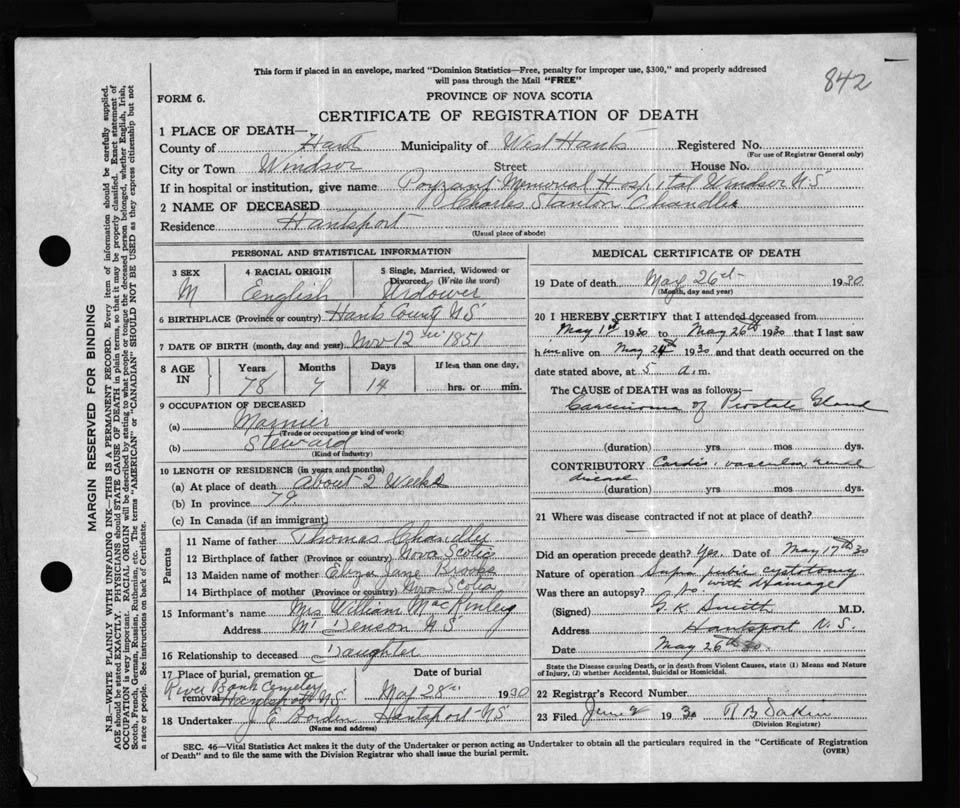 This form if placed in an envelope, marked "Dominion Statistics—Free, penalty for improper use, $300," and properly addressed
will pass through the Mail "FREE"
842
FORM 6.
PROVINCE OF NOVA SCOTIA
CERTIFICATE OF REGISTRATION OF DEATH
1 PLACE OF DEATH—
County of Hants Municipality of West Hants Registered No.
(For use of Registrar General only)
City or Town Windsor Street House No.
If in hospital or institution, give name Payzant Memorial Hospital Windsor N.S
2 NAME OF DECEASED Charles Stanton Chandler
Residence Hantsport
(Usual place of abode)
PERSONAL AND STATISTICAL INFORMATION
3 SEX 4 RACIAL ORIGIN 5 Single, Married, Widowed or
Divorced. (Write the word)
M English Widower
6 BIRTHPLACE (Province or country) Hants County N.S
7 DATE OF BIRTH (month, day and year) Nov 12 1851
8 AGE IN Years Months Days If less than one day,
78 14 hrs. or min.
9 OCCUPATION OF DECEASED
(a) Mariner
(Trade or occupation or kind of work)
(b) Steward
(Kind of industry)
10 LENGTH OF RESIDENCE (in years and months)
(a) At place of death About 2 Weeks
(b) In province 79
(c) In Canada (if an immigrant)
Parents
11 Name of father Thomas Chandler
12 Birthplace of father (Province or country) Nova Scotia
13 Maiden name of mother Eliza Jane Brooks
14 Birthplace of mother (Province or country) Nova Scotia
15 Informant's name Mrs William MacKinley
Address Mt Denson N.S
16 Relationship to deceased Daughter
17 Place of burial, cremation or Date of burial
River Bank Cemetery
removal Hantsport N.S May 28 1930
18 Undertaker J E Borden Hantsport N.S
(Name and address)
MEDICAL CERTIFICATE OF DEATH
19 Date of death May 26 1930
(Month, day and year)
20 I HEREBY CERTIFY that I attended deceased from
May 1st 1930 to May 26th 1930 that I last saw
him alive on May 24th 1930 and that death occurred on the
date stated above, at 5 a.m.
The CAUSE OF DEATH was as follows:—
Carcinoma of Prostate Gland
(duration) yrs mos dys.
CONTRIBUTORY Cardio-vascular renal
disease
(duration) yrs. mos dys.
21 Where was disease contracted if not at place of death?
Did an operation precede death? Yes. Date of May 17th 30
Nature of operation Supra pubic cystotomy
with drainage
Was there an autopsy? No.
(Signed) G. K. Smith M.D.
Address Hantsport N.S.
Date May 26th 30
State the Disease causing Death, or in death from Violent Causes, state (1) Means and Nature
of Injury, (2) whether Accidental, Suicidal or Homicidal.
22 Registrar's Record Number
23 Filed June 2 1930 R B Dakin
(Division Registrar)
SEC. 46—Vital Statistics Act makes it the duty of the Undertaker or person acting as Undertaker to obtain all the particulars required in the "Certificate of Registration
of Death" and to file the same with the Division Registrar who shall issue the burial permit.
(OVER)
MARGIN RESERVED FOR BINDING
N.B.—WRITE PLAINLY WITH UNFADING INK—THIS IS A PERMANENT RECORD. Every item of information should be carefully supplied.
AGE should be stated EXACTLY. PHYSICIANS should STATE CAUSE OF DEATH in plain terms, so that it may be properly classified. Exact statement of
OCCUPATION is very important. RACIAL ORIGIN will be described by stating to what people or tongue the deceased person belonged, whether English, Irish,
Scotch, French, German, Russian, Ruthenian, etc. The terms "AMERICAN" or "CANADIAN" SHOULD NOT BE USED as they express citizenship but not
a race or people. See instructions on back of Certificate.